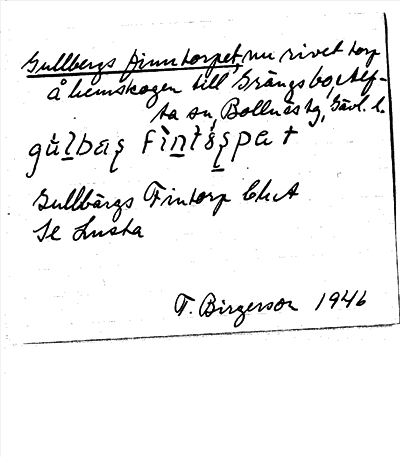 Gullbergs finntorpet, nu rivet torp
å hemskogen till Grängsbo, Alf-
ta sn, Bollnäs tg, Gävl. l.
Gullbärgs Fintorp Ek A
Se Lusta
T. Birgerson 1946